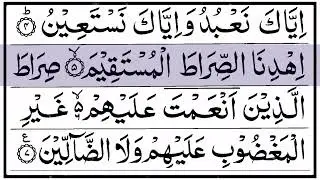 اِيَّاكَ نَعْبُدُ وَاِيَّاكَ نَسْتَعِيْنُ ۴
اِهْدِنَا الصِّرَاطَ الْمُسْتَقِيْمَ ۵ صِرَاطَ
الَّذِيْنَ اَنْعَمْتَ عَلَيْهِمْ ۶ غَيْرِ
الْمَغْضُوْبِ عَلَيْهِمْ وَلَا الضَّآلِّيْنَ ۷